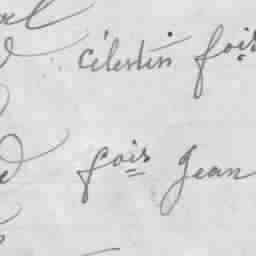 Célestin fois
fois Jean